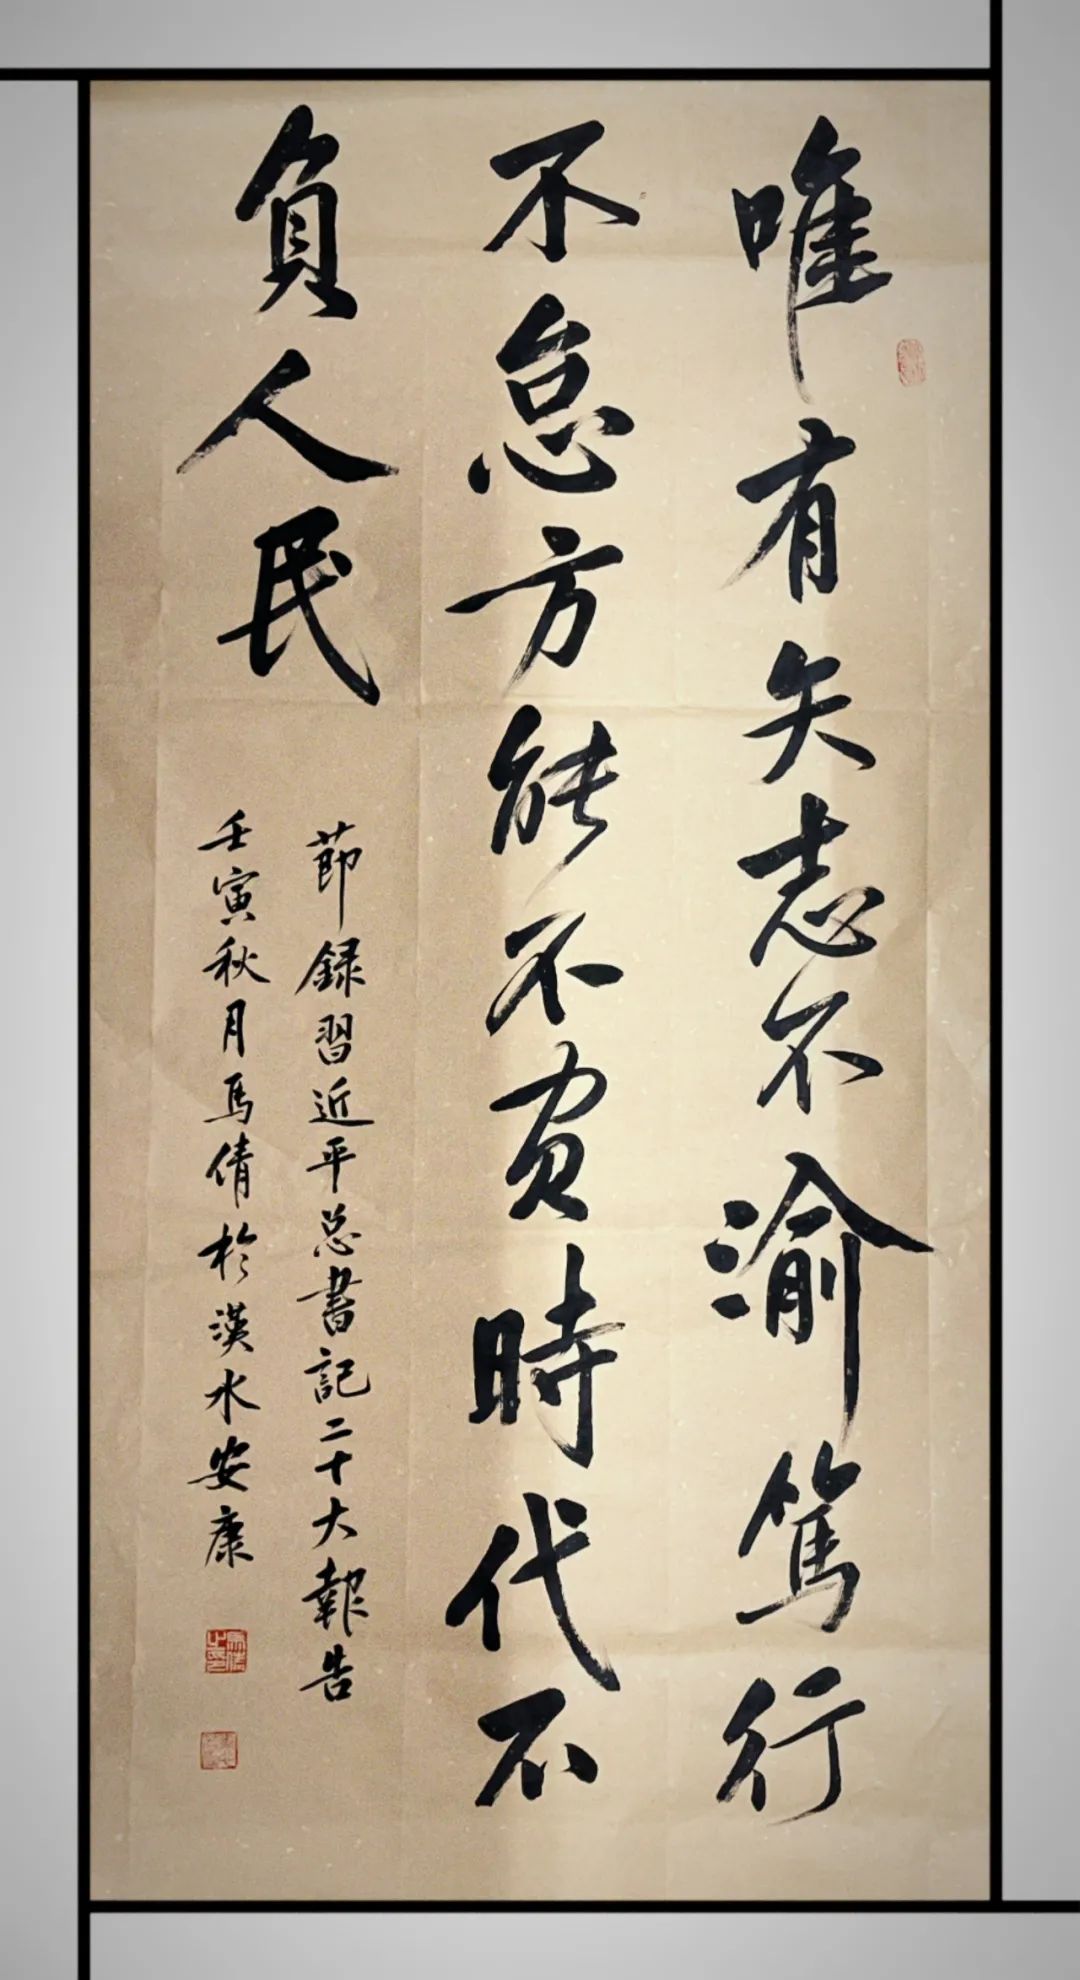 唯有矢志不渝篤行
不怠方能不負時代不
負人民
莭録習近平总書記二十大報告
壬寅秋月馬倩於漢水安康